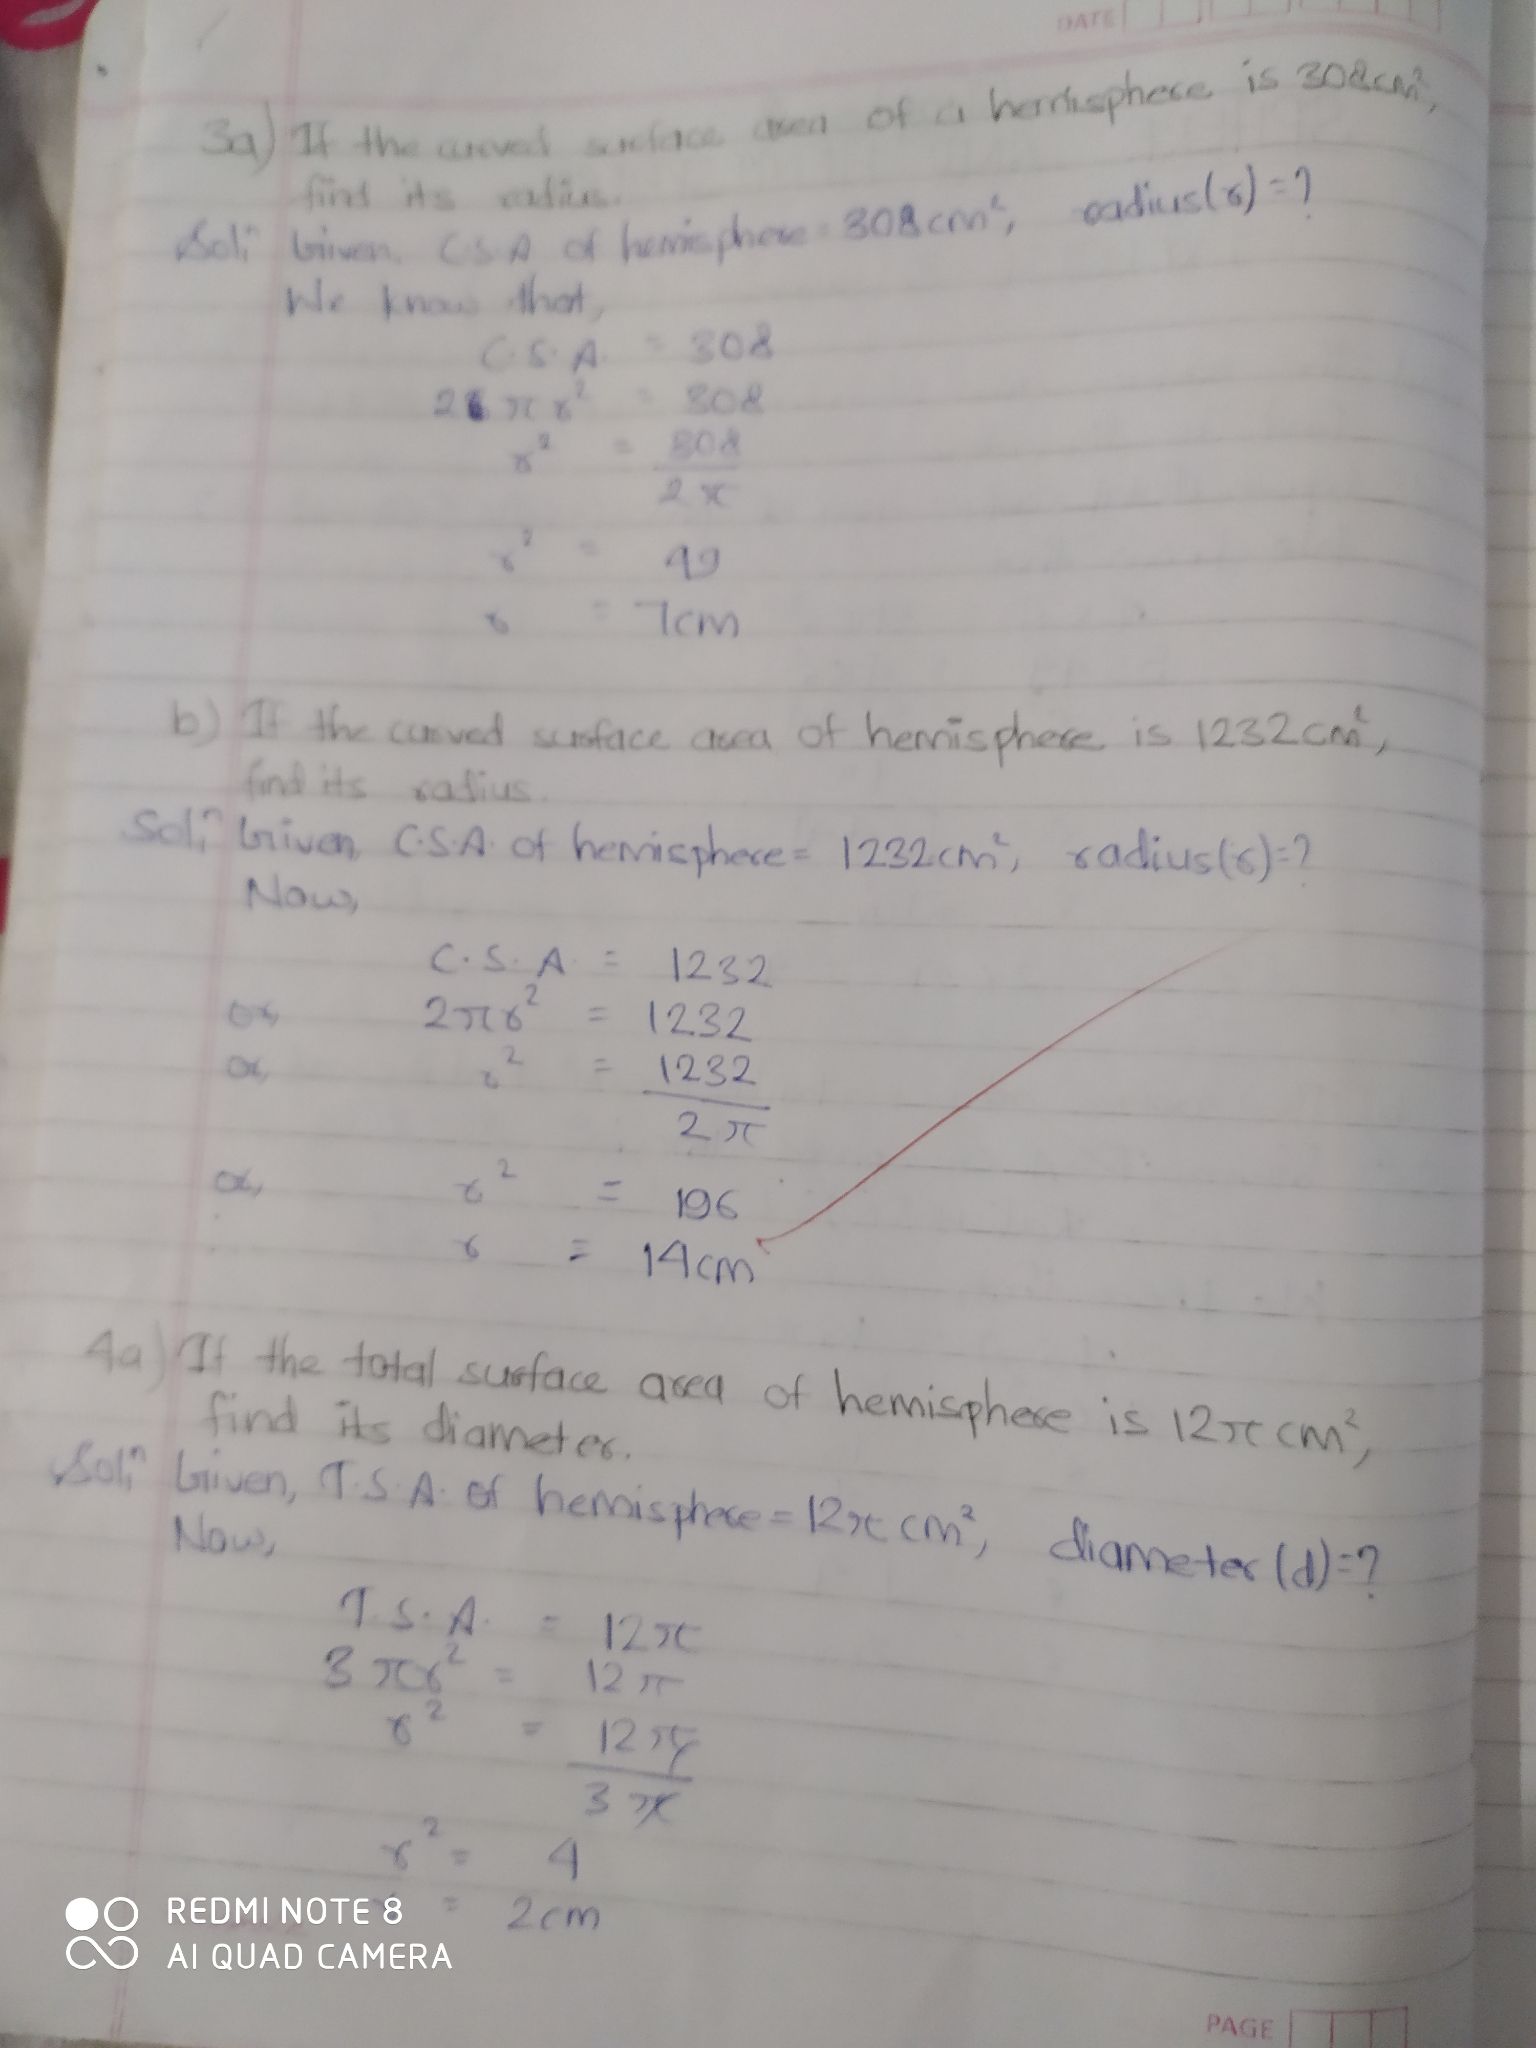 DATE
3a) If the curved surface area of a hemisphere is 308cm²,
find its radius.
Solⁿ Given, C.S.A of hemisphere = 308cm², radius(r)=?
We know that,
C.S.A. = 308
2πr² = 308
r² = 308
2π
r² = 49
r = 7cm
b) If the curved surface area of hemisphere is 1232cm²,
find its radius.
Solⁿ Given, C.S.A. of hemisphere = 1232cm², radius(r)=?
Now,
C.S.A. = 1232
or, 2πr² = 1232
or, r² = 1232
2π
or, r² = 196
r = 14cm
4a) If the total surface area of hemisphere is 12πcm²,
find its diameter.
Solⁿ Given, T.S.A. of hemisphere = 12πcm², diameter(d)=?
Now,
T.S.A. = 12π
3πr² = 12π
r² = 12π
3π
r² = 4
r = 2cm
REDMI NOTE 8
AI QUAD CAMERA
PAGE